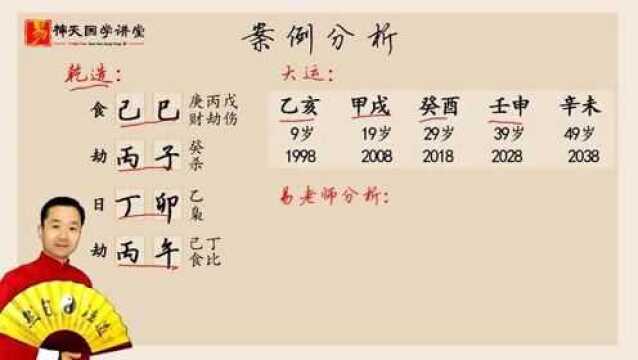 易 神天国学讲堂
案例分析
乾造：
食 己 巳 庚丙戊
财劫伤
劫 丙 子 癸
杀
日 丁 卯 乙
枭
劫 丙 午 己丁
食比
大运：
乙亥 甲戌 癸酉 壬申 辛未
9岁 19岁 29岁 39岁 49岁
1998 2008 2018 2028 2038
易老师分析：